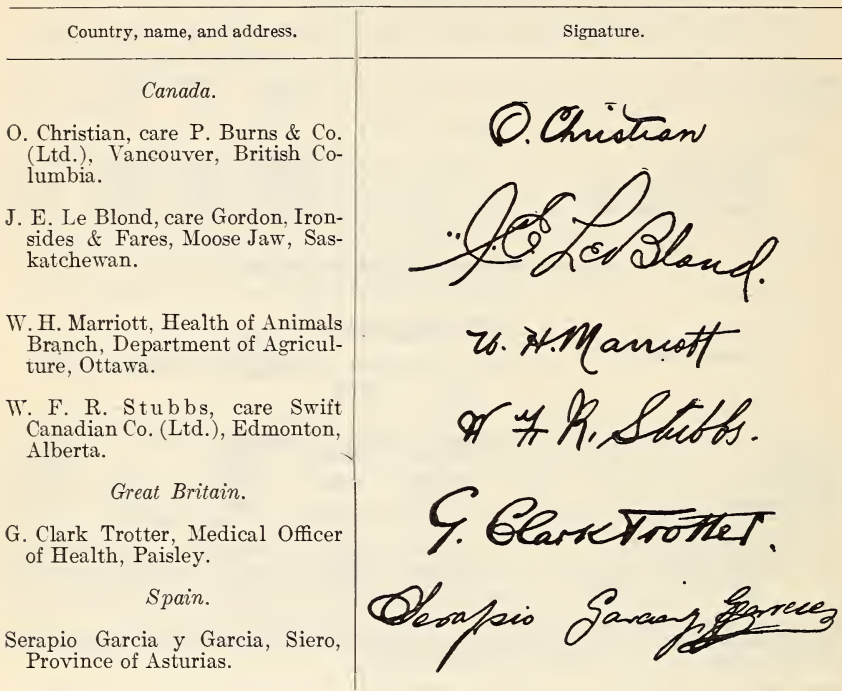 Country, name, and address.
Signature.
Canada.
O. Christian, care P. Burns & Co.
(Ltd.), Vancouver, British Co-
lumbia.
O. Christian
J. E. Le Blond, care Gordon, Iron-
sides & Fares, Moose Jaw, Sas-
katchewan.
J. E. Le Blond.
W. H. Marriott, Health of Animals
Branch, Department of Agricul-
ture, Ottawa.
W. H. Marriott
W. F. R. Stubbs, care Swift
Canadian Co. (Ltd.), Edmonton,
Alberta.
W F R. Stubbs.
Great Britain.
G. Clark Trotter, Medical Officer
of Health, Paisley.
G. Clark Trotter.
Spain.
Serapio Garcia y Garcia, Siero,
Province of Asturias.
Serapio Garcia y Garcia